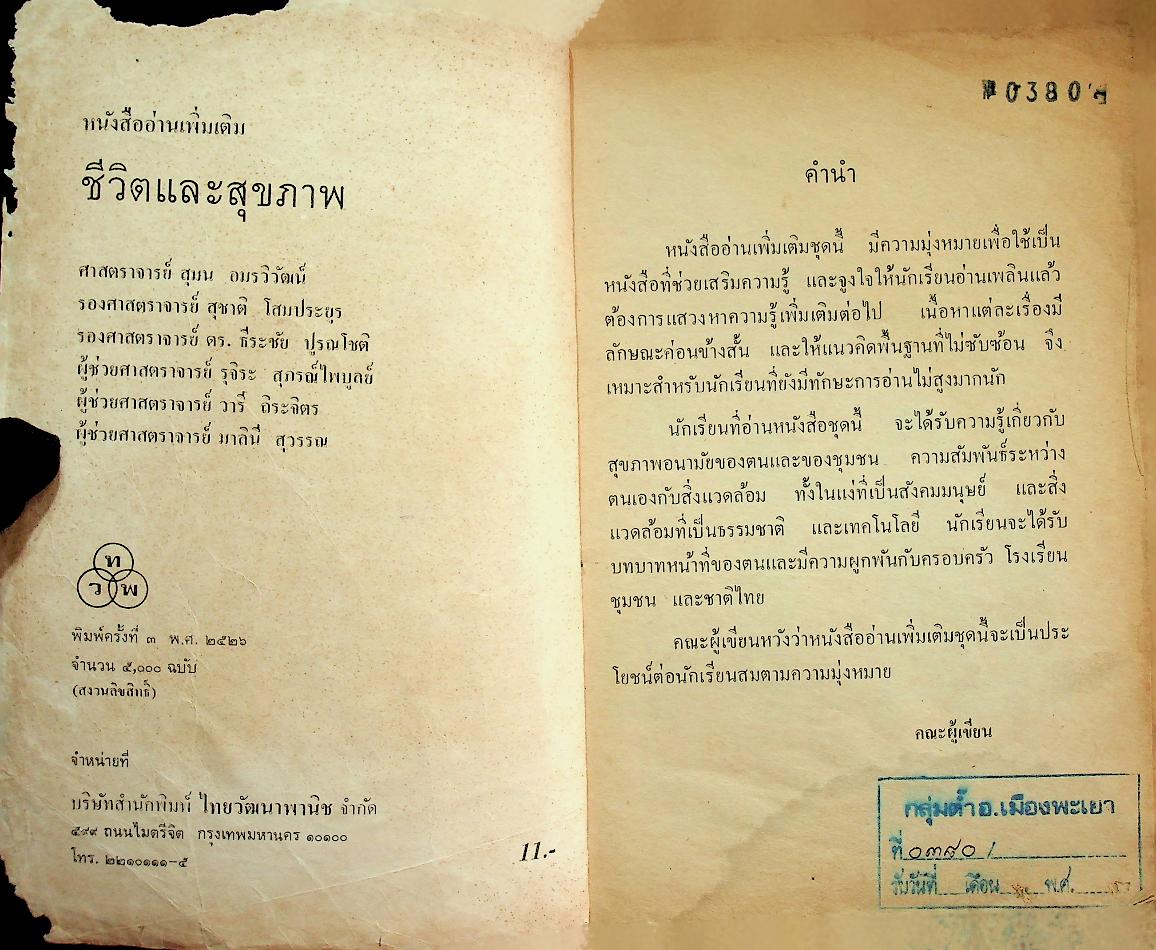 หนังสืออ่านเพิ่มเติม
ชีวิตและสุขภาพ
ศาสตราจารย์ สุมน อมรวิวัฒน์
รองศาสตราจารย์ สุชาติ โสมประยูร
รองศาสตราจารย์ ดร. ธีระชัย ปูรณโชติ
ผู้ช่วยศาสตราจารย์ รุจิระ สุภรณ์ไพบูลย์
ผู้ช่วยศาสตราจารย์ วารี ถิระจิตร
ผู้ช่วยศาสตราจารย์ มาลินี สุวรรณ
ท
ว พ
พิมพ์ครั้งที่ ๓ พ.ศ. ๒๕๒๖
จำนวน ๕,๐๐๐ ฉบับ
(สงวนลิขสิทธิ์)
จำหน่ายที่
บริษัทสำนักพิมพ์ ไทยวัฒนาพานิช จำกัด
๕๙๙ ถนนไมตรีจิต กรุงเทพมหานคร ๑๐๑๐๐
โทร. ๒๒๑๐๑๑๑-๕
11.-
0380
คำนำ
หนังสืออ่านเพิ่มเติมชุดนี้ มีความมุ่งหมายเพื่อใช้เป็น
หนังสือที่ช่วยเสริมความรู้ และจูงใจให้นักเรียนอ่านเพลินแล้ว
ต้องการแสวงหาความรู้เพิ่มเติมต่อไป เนื้อหาแต่ละเรื่องมี
ลักษณะค่อนข้างสั้น และให้แนวคิดพื้นฐานที่ไม่ซับซ้อน จึง
เหมาะสำหรับนักเรียนที่ยังมีทักษะการอ่านไม่สูงมากนัก
นักเรียนที่อ่านหนังสือชุดนี้ จะได้รับความรู้เกี่ยวกับ
สุขภาพอนามัยของตนและของชุมชน ความสัมพันธ์ระหว่าง
ตนเองกับสิ่งแวดล้อม ทั้งในแง่ที่เป็นสังคมมนุษย์ และสิ่ง
แวดล้อมที่เป็นธรรมชาติ และเทคโนโลยี นักเรียนจะได้รับ
บทบาทหน้าที่ของตนและมีความผูกพันกับครอบครัว โรงเรียน
ชุมชน และชาติไทย
คณะผู้เขียนหวังว่าหนังสืออ่านเพิ่มเติมชุดนี้จะเป็นประ
โยชน์ต่อนักเรียนสมตามความมุ่งหมาย
คณะผู้เขียน
กลุ่มต๋ำอ.เมืองพะเยา
ที่ ๐๓๘๐
รับวันที่ เดือน พ.ศ.